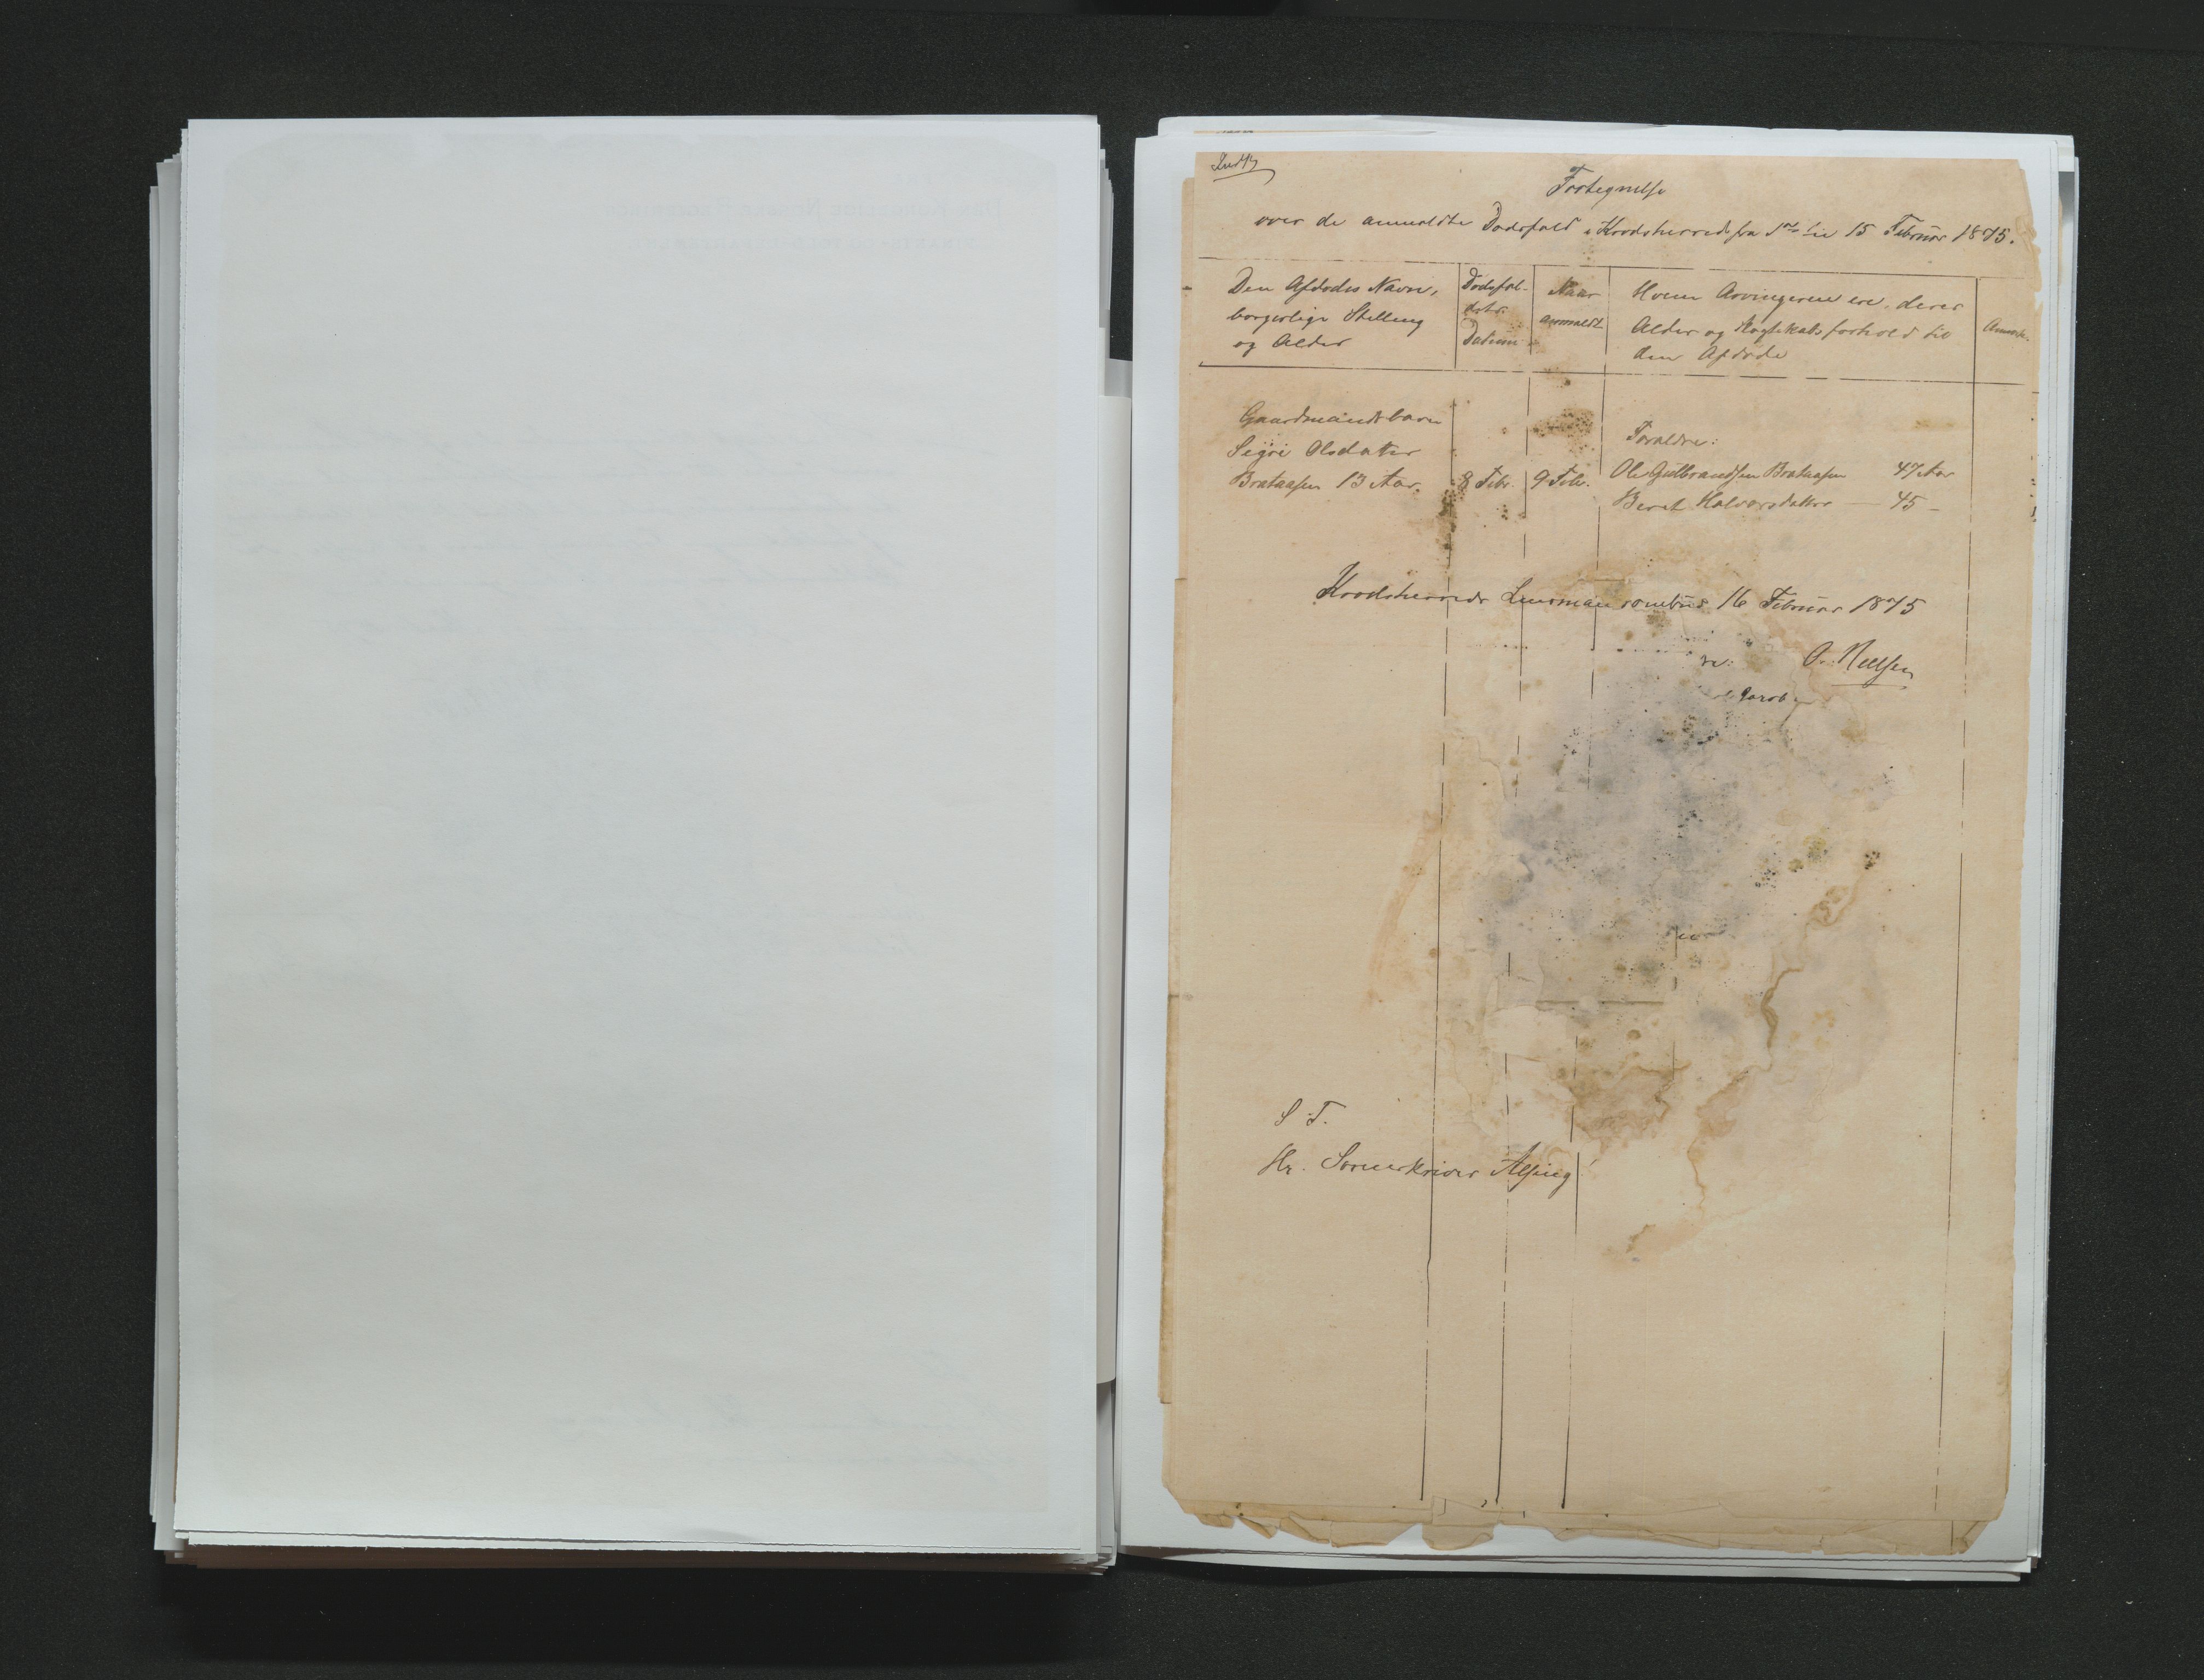 Fortegnelse
over de anmeldte Dødsfald i Krødsherred fra 1ste til 15 Februar 1875.
Den Afdødes Navn, borgerlige Stilling og Alder
Dødsfaldets Datum
Naar anmeldt
Hvem Arvingerne ere, deres Alder og Slægtskabsforhold til den Afdøde
Anmærk.
Gaardmandsbarn
Sigri Olsdatter
Brataasen 13 Aar.
8 Febr.
9 Febr.
Forældre:
Ole Gulbrandsen Brataasen 47 Aar
Beret Halvorsdatter — 45 –
Krødsherreds Lensmandsombud 16 Februar 1875
O. Nielsen
S. T.
Hr. Sorenskriver Alsing